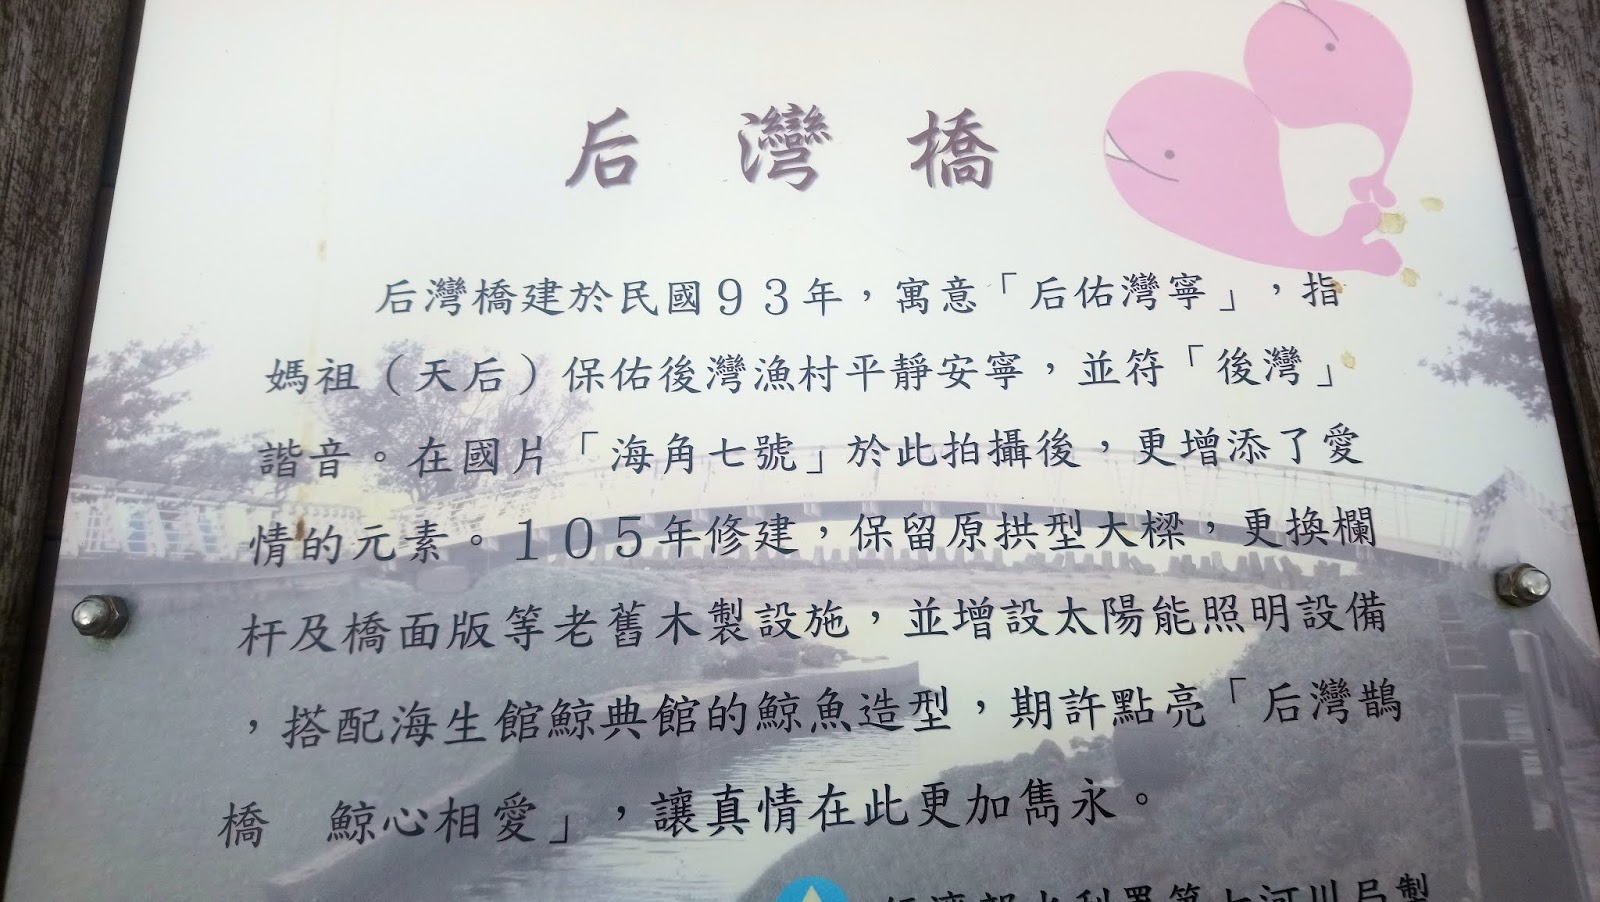 后灣橋
后灣橋建於民國93年，寓意「后佑灣寧」，指
媽祖（天后）保佑後灣漁村平靜安寧，並符「後灣」
諧音。在國片「海角七號」於此拍攝後，更增添了愛
情的元素。105年修建，保留原拱型大樑，更換欄
杆及橋面版等老舊木製設施，並增設太陽能照明設備
，搭配海生館鯨典館的鯨魚造型，期許點亮「后灣鵲
橋　鯨心相愛」，讓真情在此更加雋永。
經濟部水利署第七河川局製